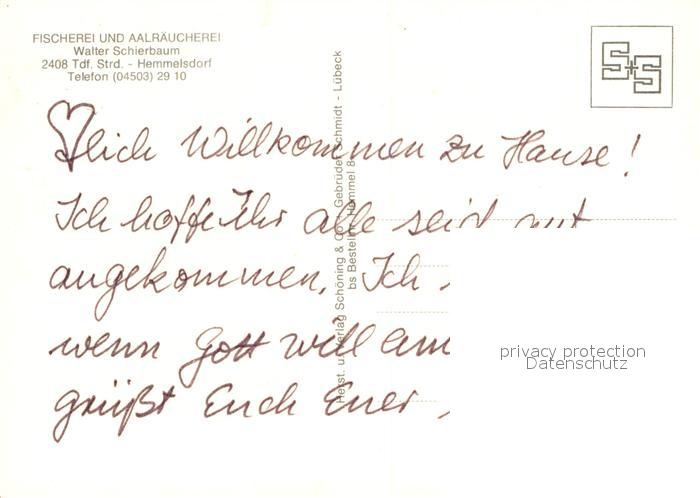 FISCHEREI UND AALRÄUCHEREI
Walter Schierbaum
2408 Tdf. Strd. - Hemmelsdorf
Telefon (04503) 29 10
S+S
lich Willkommen zu Hause!
Ich hoffe Ihr alle seid
angekommen. Ich
wenn Gott will am
grüßt Euch Euer
Verlag Schöning & Co + Gebrüder Schmidt - Lübeck
privacy protection
Datenschutz